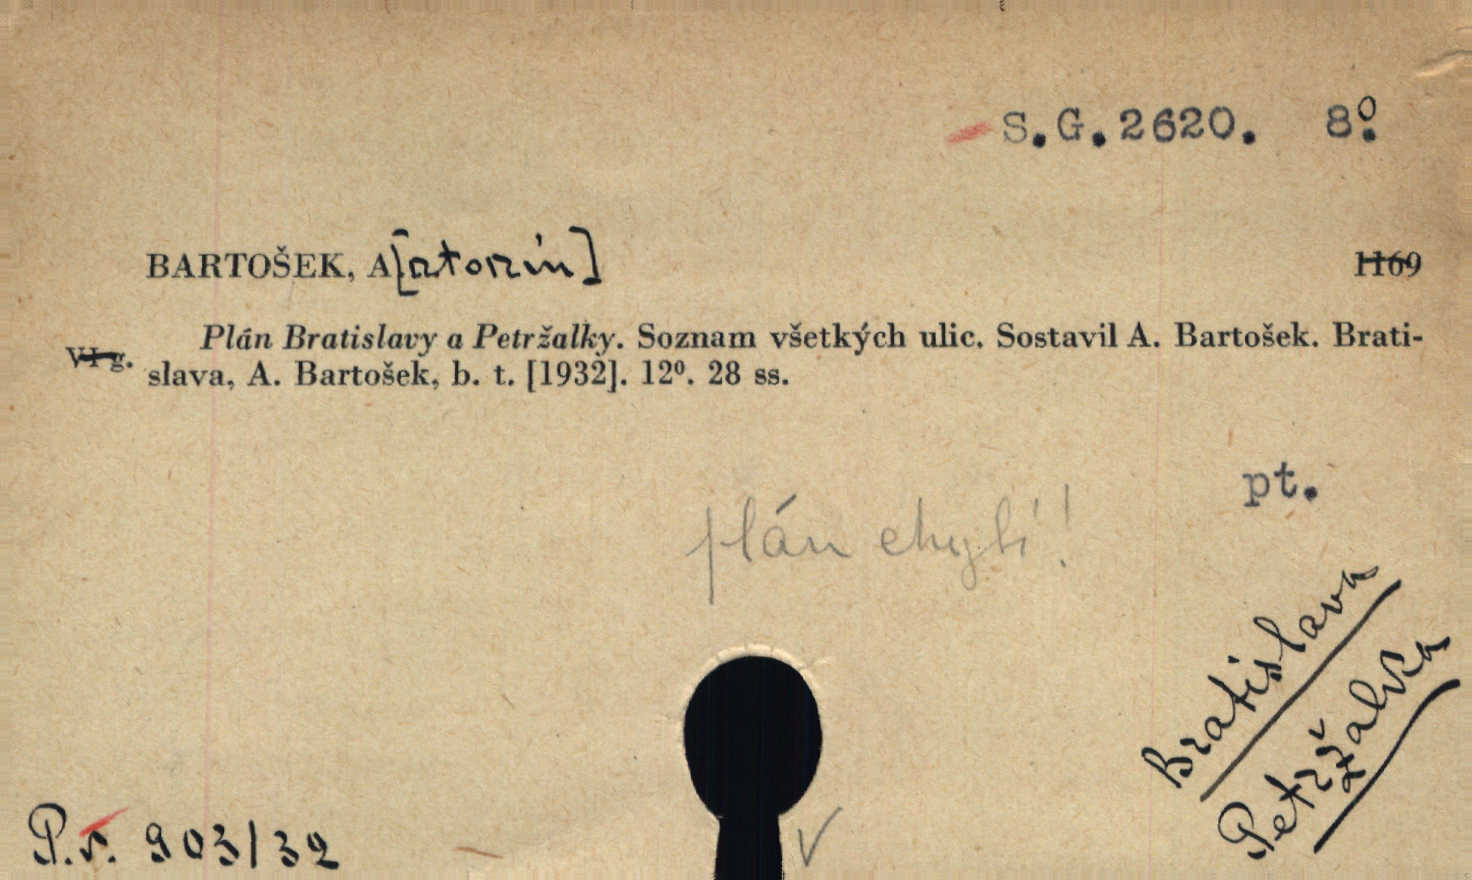 S.G.2620. 8º.
BARTOŠEK, A[ntonín] 1169
Plán Bratislavy a Petržalky. Soznam všetkých ulic. Sostavil A. Bartošek. Brati-
VI g. slava, A. Bartošek, b. t. [1932]. 12º. 28 ss.
pt.
plán chybí!
Bratislava
Petržalka
P.r. 903/32